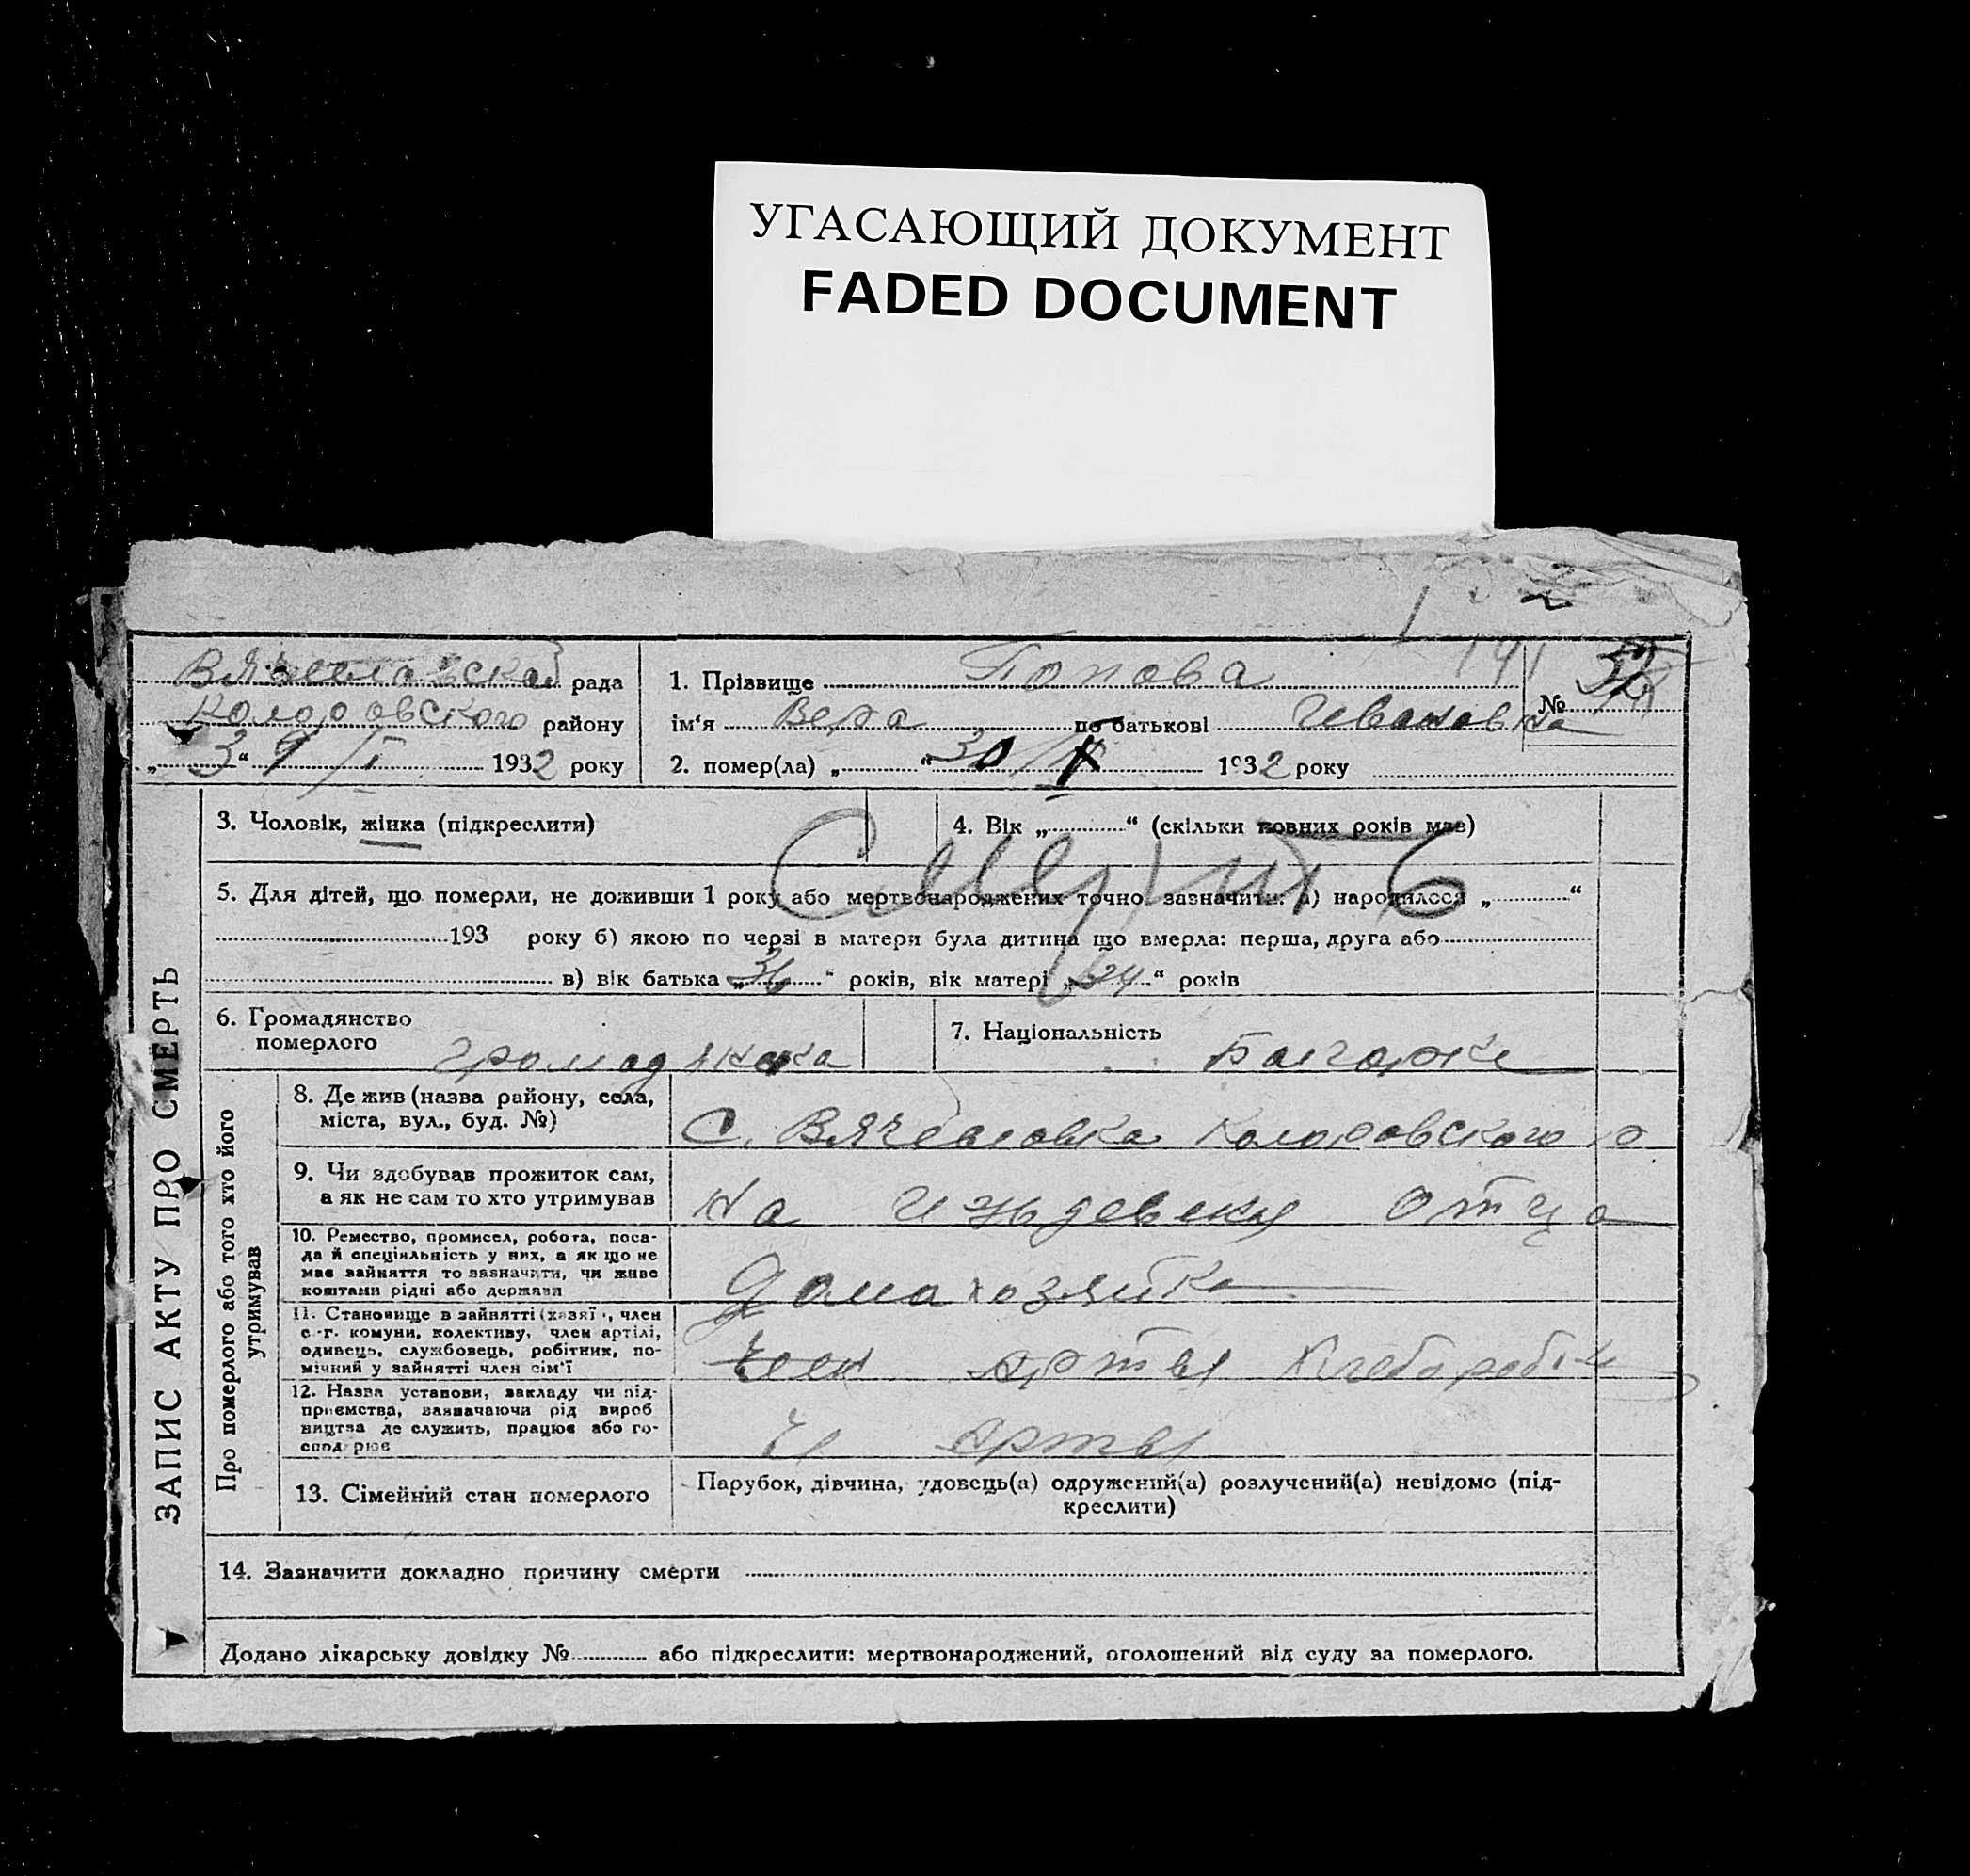 УГАСАЮЩИЙ ДОКУМЕНТ
FADED DOCUMENT
191
рада
Колоровского району
1932 року
1. Прізвище Попова
№
ім'я Вера по батькові Ивановна
2. помер(ла) „ “ 1932 року
ЗАПИС АКТУ ПРО СМЕРТЬ
3. Чоловік, жінка (підкреслити)
4. Вік „ “ (скільки повних років мав)
Смерть
5. Для дітей, що померли, не доживши 1 року або мертвонароджених точно зазначити: а) народилося „ “
193 року б) якою по черзі в матери була дитина що вмерла: перша, друга або
в) вік батька „36“ років, вік матері „34“ років
6. Громадянство
померлого громадянка
7. Національність Болгарка
Про померлого або того хто його
утримував
8. Де жив (назва району, села,
міста, вул., буд. №)
С. Вячеславка Колоровского р
9. Чи здобував прожиток сам,
а як не сам то хто утримував
На отца
10. Ремество, промисел, робота, поса-
да й спеціяльність у них, а як що не
має зайняття то зазначити, чи живе
коштами рідні або держави
Домахозяйка
11. Становище в зайнятті (хазяї , член
с.-г. комуни, колективу, член артілі,
одинець, службовець, робітник, по-
мічний у зайнятті член сім'ї
член арты
12. Назва установи, закладу чи під-
приємства, зазначаючи рід вироб
ництва де служить, працює або го-
спод рює
арты
13. Сімейний стан померлого
Парубок, дівчина, удовець(а) одружений(а) розлучений(а) невідомо (під-
креслити)
14. Зазначити докладно причину смерти
Додано лікарську довідку № або підкреслити: мертвонароджений, оголошений від суду за померлого.